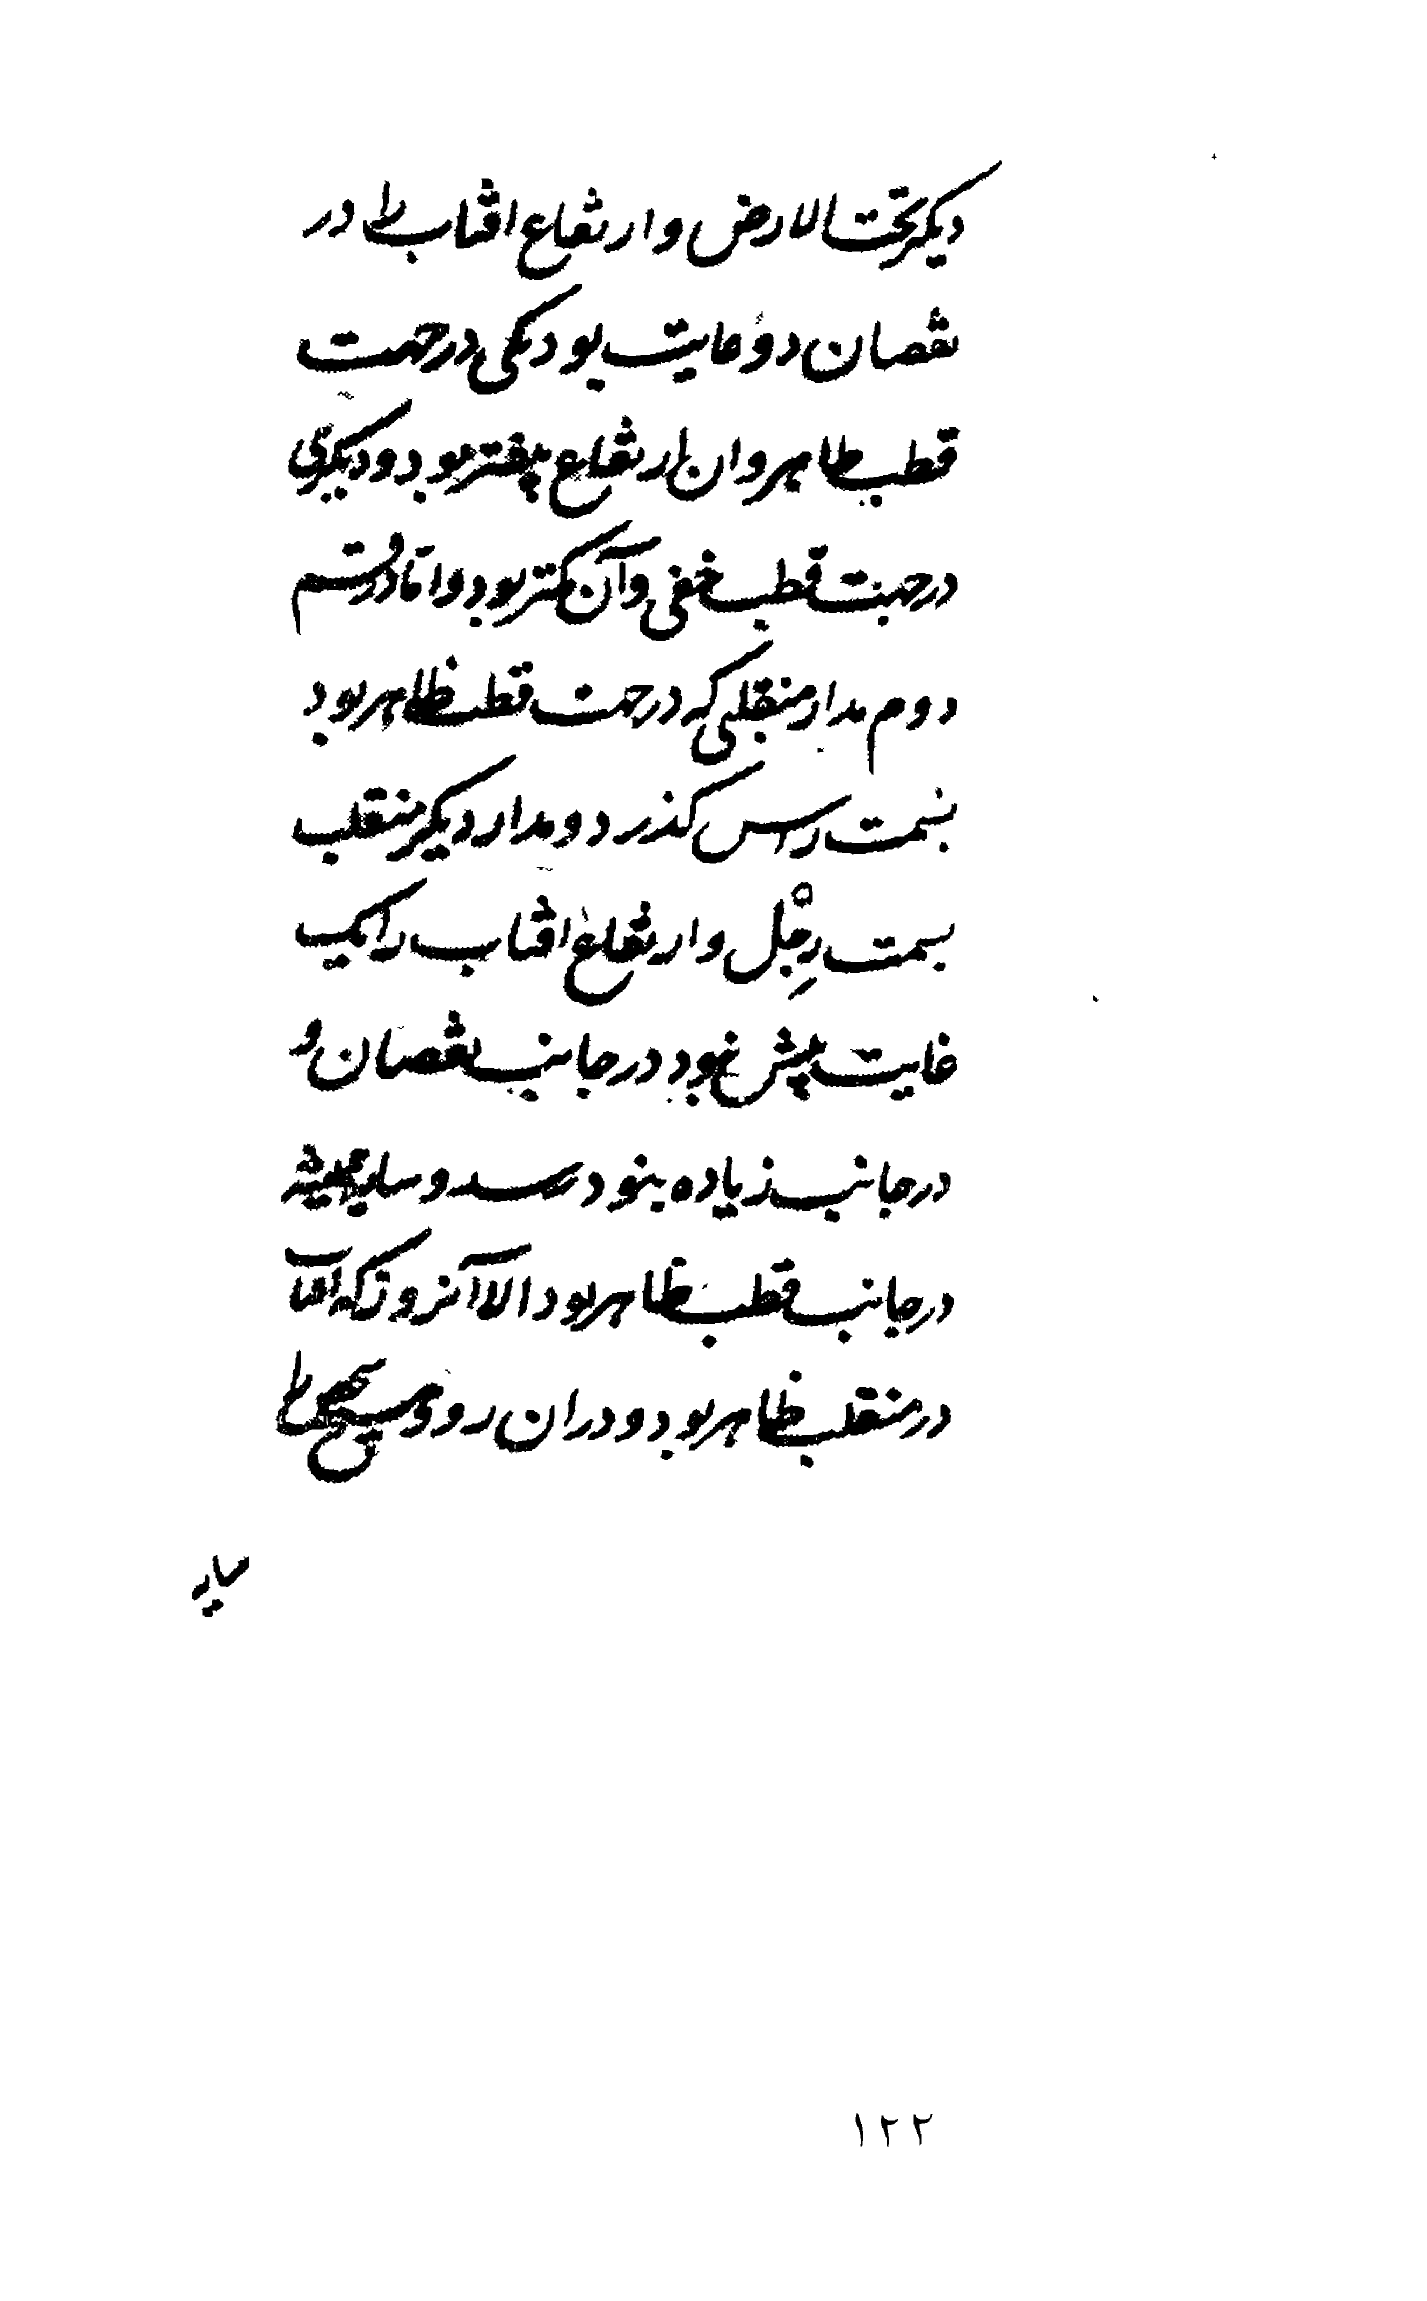 دیکر تحت الارض و ارتفاع افتاب را در
نقصان دو غایت بود یکی در جهت
قطب ظاهر و ان ارتفاع بیشتر بود و دیکری
در جهت قطب خفی و آن کمتر بود و اما در قسم
دوم مدار منقلبی که در جهت قطب ظاهر بود
بسمت راس کذرد و مدار دیکر منقلب
بسمت رِجْل و ارتفاع افتاب را یک
غایت بیش نبود در جانب نقصان و
در جانب زیاده بنود رسد و سایه همیشه
در جانب قطب ظاهر بود الا آنروز که افتاب
در منقلب ظاهر بود و در ان روز هیچ شخص را
سایه
۱۲۲